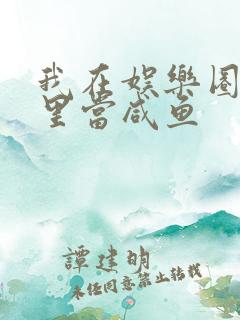 我在娱樂圈
里當咸鱼
譚建明
未经同意禁止转载